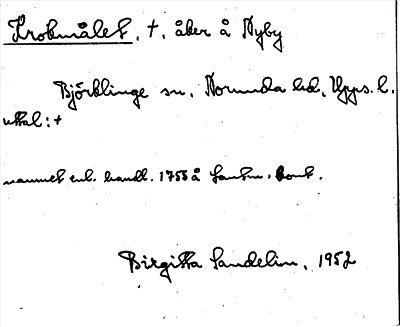 Krokmålet, †, åker å Nyby
Björklinge sn, Norunda hd, Upps. l.
uttal: †
namnet enl. handl. 1755 å Lantm. kont.
Birgitta Sandelin, 1952